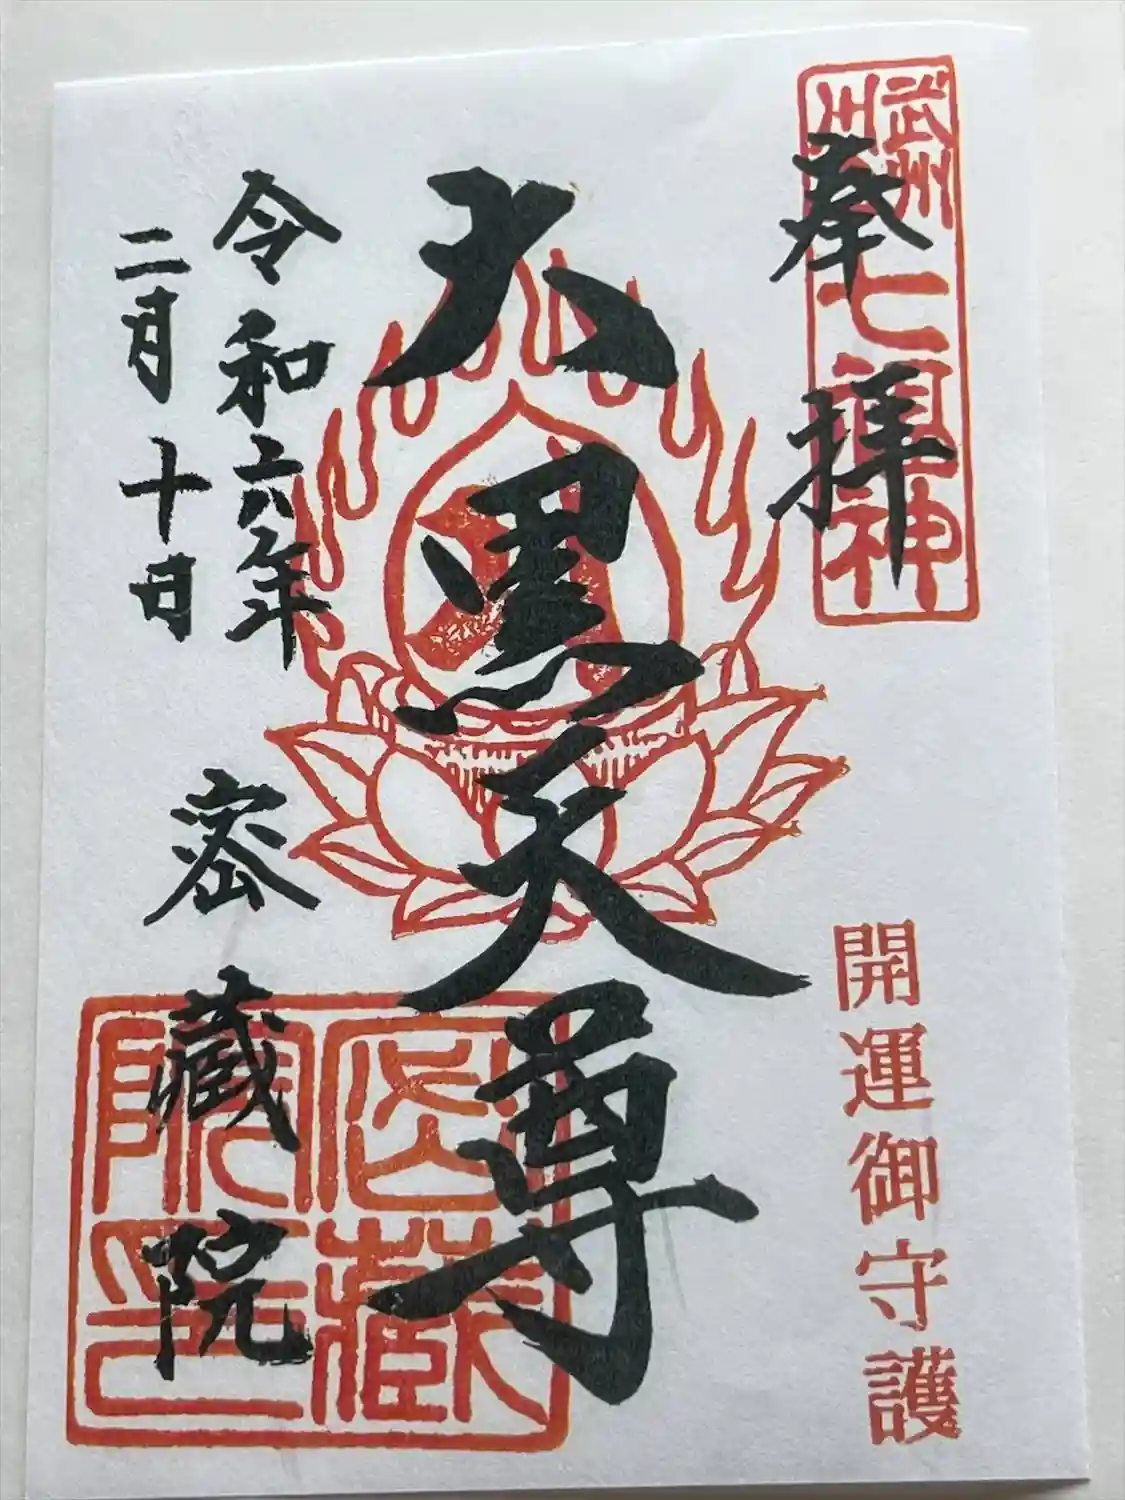 武州
川
七福神
奉拝
開運御守護
大黒天尊
令和六年
二月十日
密蔵院
密蔵
院印